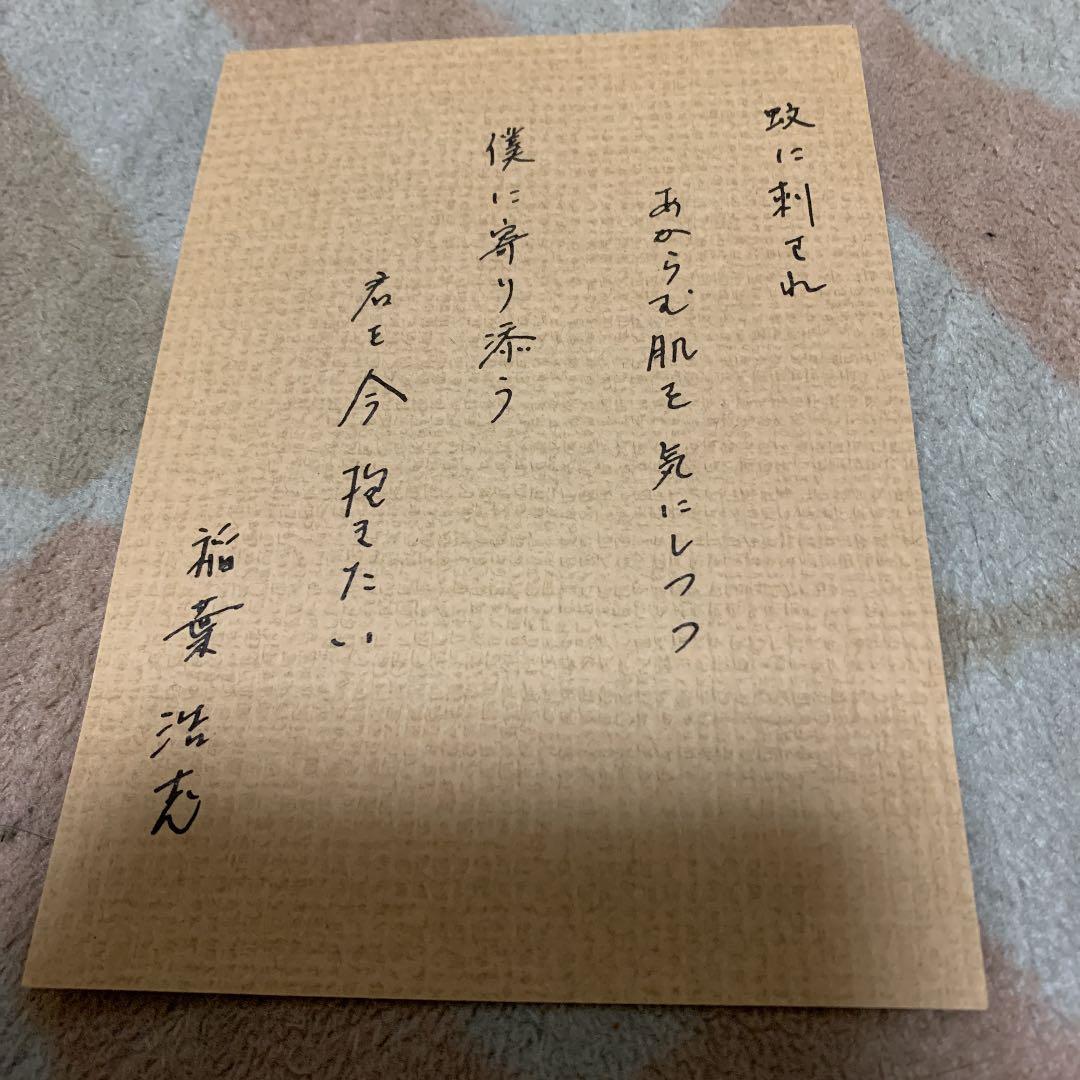 蚊に刺され
あからむ肌を 気にしつつ
僕に寄り添う
君を今 抱きたい
稲葉 浩志